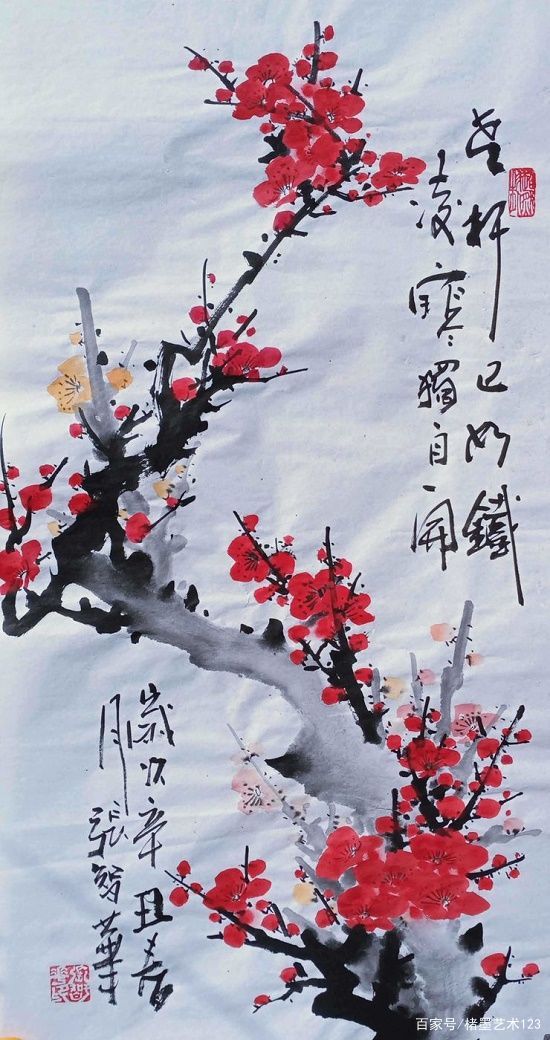 老杆已如鐵
凌寒獨自開
歲次辛丑春
月張智華
百家号/楮墨艺术123